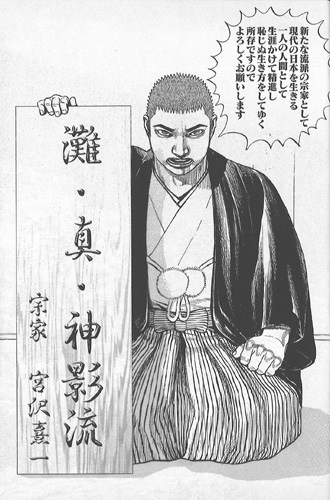 新たな流派の宗家として
現代の日本を生きる
一人の人間として
生涯かけて精進し
恥じぬ生き方をしてゆく
所存ですので
よろしくお願いします
灘・真・神影流
宗家 宮沢熹一